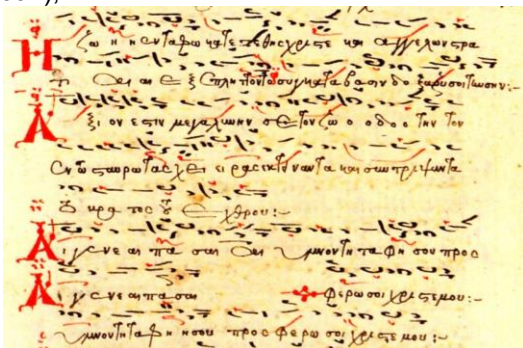 Η ζω η η εν τα φω κατε τεθης χριστε και αγγελων στρα
τι αι αι ε ξεπληττοντο συγκαταβασιν δο ξαζουσαι την σην :-
Α ξι ον εστιν μεγαλυνην σε ε τον ζω ο ο δο ο την τον
εν τω σταυρω τας χε ει ρας εκτεναντα και συντριψαντα
χθρου :-
Α ι γενε αι πα σαι αι υμνον τη τα φη σου προσ
Α ι γενε αι πα σαι φερωσοι χριστε μου :-
υμνον τη ταφη η σου προσφερωσοι χριστε μου :-